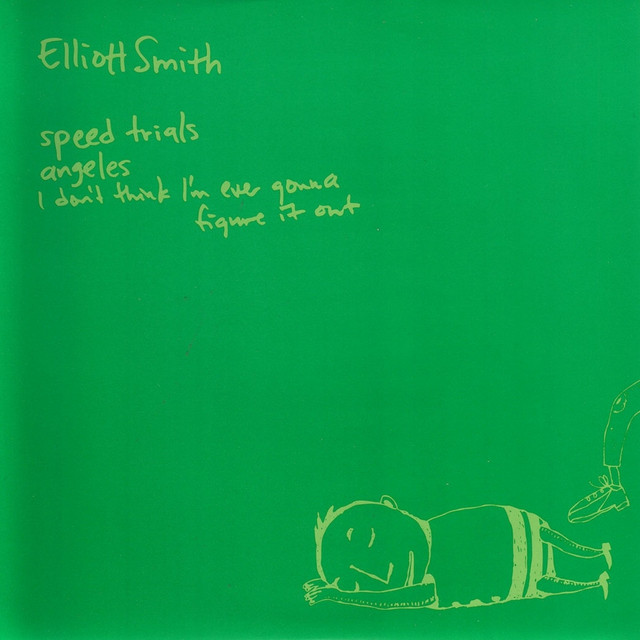 Elliott Smith
speed trials
angeles
I don't think I'm ever gonna
figure it out